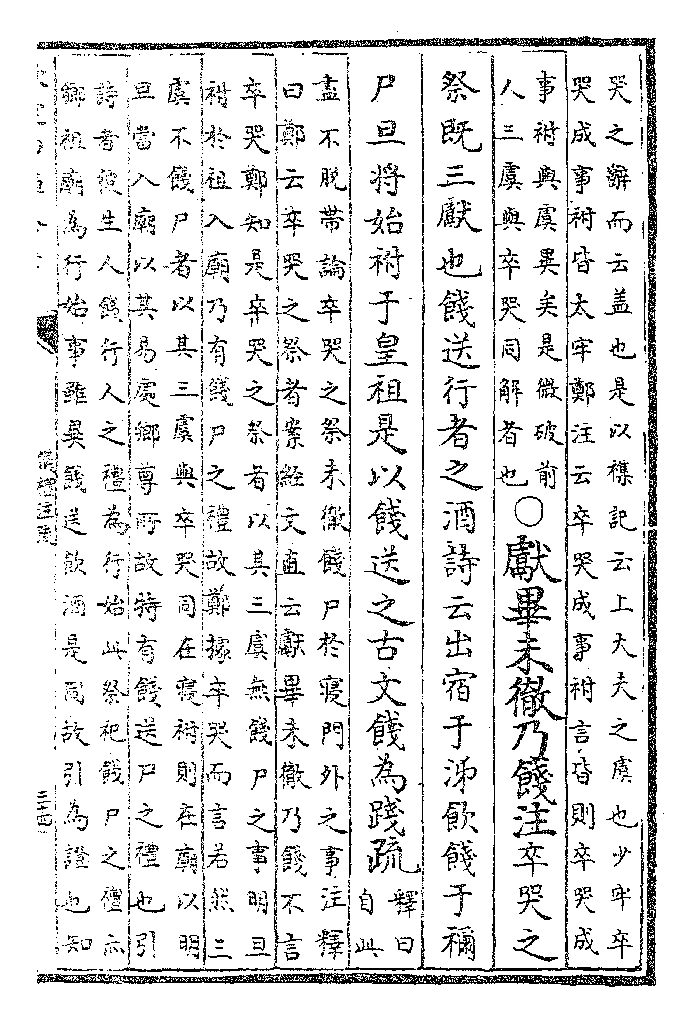 哭之辭而云盖也是以襍記云上大夫之虞也少牢卒
哭成事祔皆太牢鄭注云卒哭成事祔言皆則卒哭成
事祔與虞異矣是微破前
人三虞與卒哭同解者也
〇獻畢未徹乃餞注卒哭之
祭既三獻也餞送行者之酒詩云出宿于泲飲餞于禰
尸旦將始祔于皇祖是以餞送之古文餞為踐疏
釋曰
自此
盡不脫帶論卒哭之祭未徹餞尸於寢門外之事注釋
曰鄭云卒哭之祭者案經文直云獻畢未徹乃餞不言
卒哭鄭知是卒哭之祭者以其三虞無餞尸之事明旦
祔於祖入廟乃有餞尸之禮故鄭據卒哭而言若然三
虞不餞尸者以其三虞與卒哭同在寢祔則在廟以明
旦當入廟以其易處鄉尊所故特有餞送尸之禮也引
詩者彼生人餞行人之禮為行始此祭祀餞尸之禮亦
鄉祖廟為行始事雖異餞送飲酒是同故引為證也知
儀禮注疏
三十四